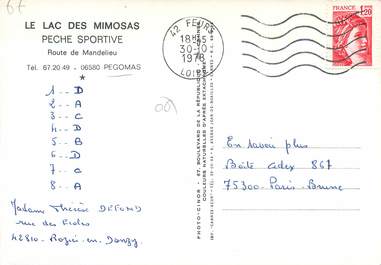 67
LE LAC DES MIMOSAS
PECHE SPORTIVE
Route de Mandelieu
Tél. 67.20.49 - 06580 PEGOMAS
*
1 -- D
2 -- A
3 -- C
4 -- D
5 -- B
6 -- D
7 -- C
8 -- A
Madame Thérèse DEFOND
rue des Ecoles
42810 - Rozier-en-Donzy
PHOTO-CINOR - 67, BOULEVARD DE LA RÉPUBLIQUE
COULEURS NATURELLES D'APRÈS EKTACHROME
42 FEURS
18H
30-10
1978
LOIRE
FRANCE
1,20
En savoir plus
Boîte adex 867
75300 - Paris - Brune